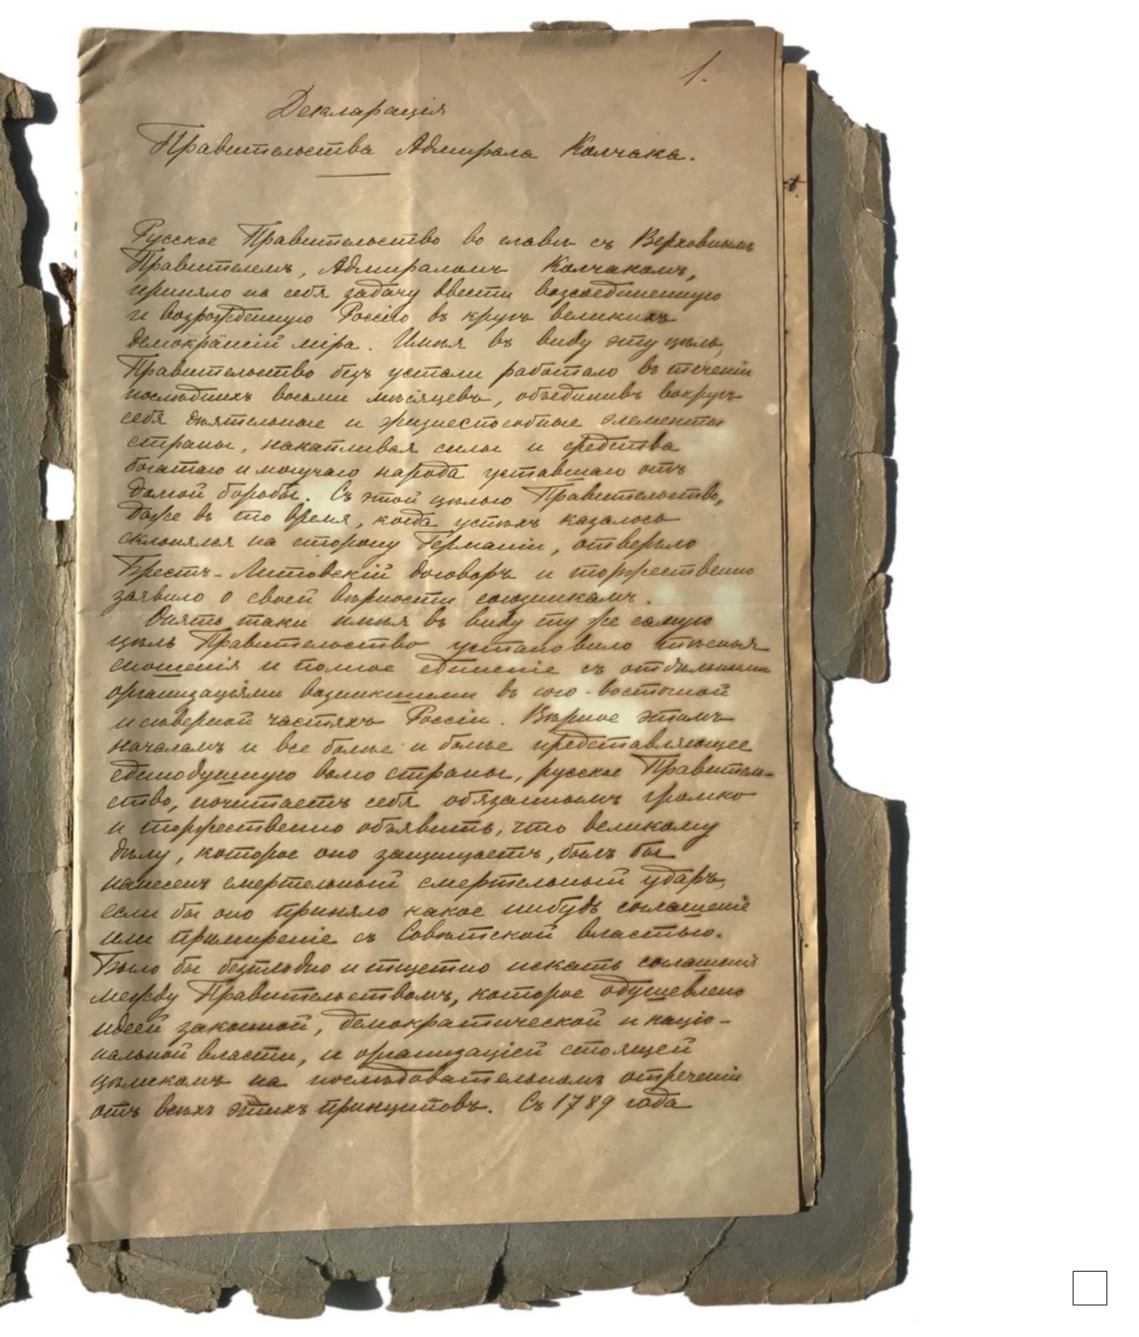 1.
Декларація
Правительства Адмирала Колчака.
Русское Правительство во главѣ съ Верховнымъ
Правителемъ, Адмираломъ Колчакомъ,
приняло на себя задачу ввести возсоединенную
и возрожденную Россію въ кругъ великихъ
демократій міра. Имѣя въ виду эту цѣль,
Правительство безъ устали работало въ теченіи
послѣднихъ восьми мѣсяцевъ, объединивъ вокругъ
себя дѣятельные и жизнеспособные элементы
страны, накапливая силы и средства
богатаго и могучаго народа уставшаго отъ
долгой борьбы. Съ этой цѣлью Правительство,
даже въ то время, когда успѣхъ казалось
склонялся на сторону Германіи, отвергло
Брестъ-Литовскій договоръ и торжественно
заявило о своей вѣрности союзникамъ.
Опять таки имѣя въ виду ту же самую
цѣль Правительство установило тѣсныя
сношенія и полное единеніе съ отдѣльными
организаціями возникшими въ юго-восточной
и сѣверной частяхъ Россіи. Вѣрное этимъ
началамъ и все болѣе и болѣе представляющее
единодушную волю страны, русское Правитель-
ство, почитаетъ себя обязаннымъ громко
и торжественно объявить, что великому
дѣлу, которое оно защищаетъ, былъ бы
нанесенъ смертельный смертельный ударъ,
если бы оно приняло какое нибудь соглашеніе
или примиреніе съ Совѣтской властью.
Было бы безплодно и тщетно искать соглашенія
между Правительствомъ, которое одушевлено
идеей законной, демократической и націо-
нальной власти, и организаціей стоящей
цѣликомъ на послѣдовательномъ отреченіи
отъ всѣхъ этихъ принциповъ. Съ 1789 года